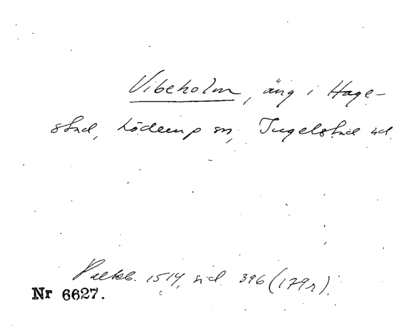 Vibeholm, äng i Hage-
stad, Löderup sn, Ingelstad hd.
Palteb. 1514, sid. 396 (179r).
Nr 6627.